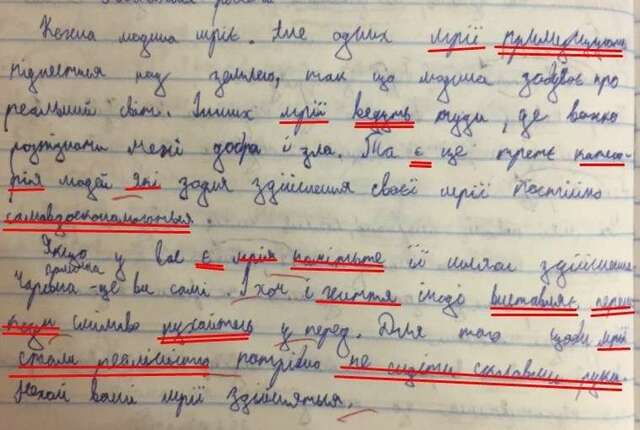 Кожна людина мріє. Але одних мрії примушують
піднятися над землею, так що людина забуває про
реальний світ. Інших мрії ведуть туди, де важко
розпізнати межі добра й зла. Та є ще третя катего-
рія людей які задля здійснення своєї мрії постійно
самовдосконалюються.
Якщо у вас є мрія намітьте її шлях здійснення.
Чарівна паличка - це ви самі. І хоч і життя іноді виставляє перешкоди
сміливо рухайтесь у перед. Для того щоби мрії
стали реальністю потрібно не сидіти склавши руки.
Нехай ваші мрії здійсняться.